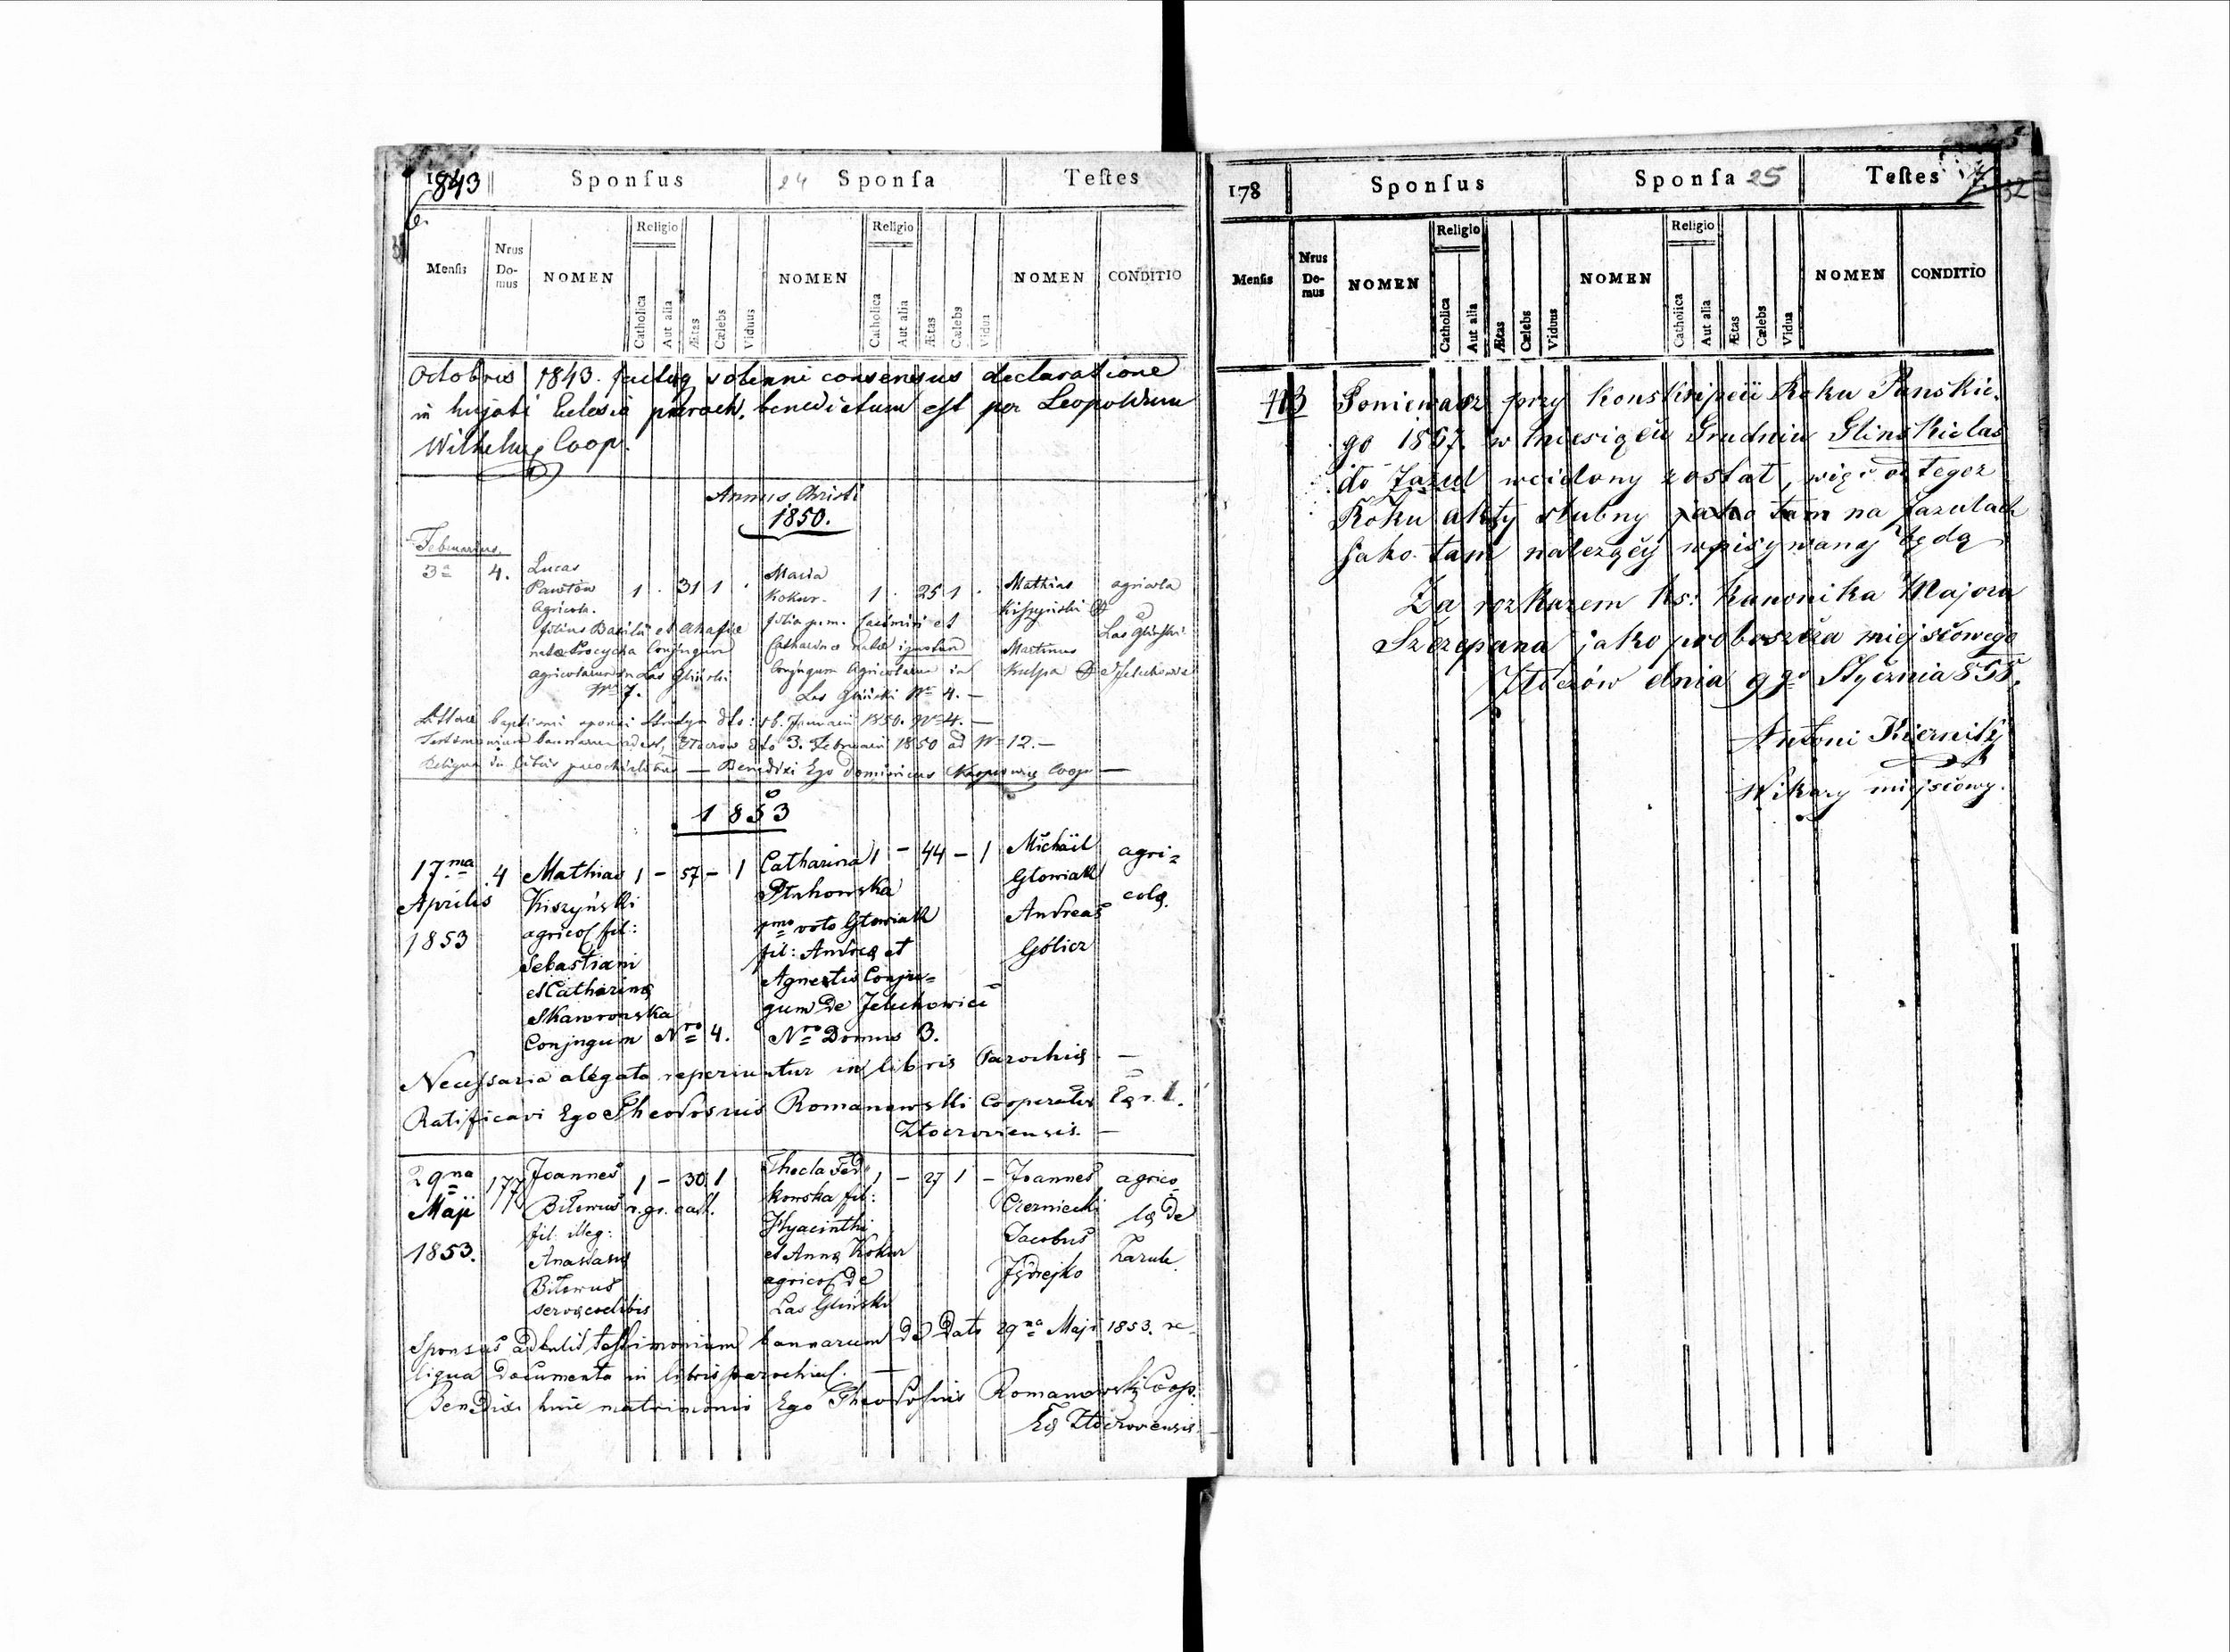 1843 Sponsus 24 Sponsa Testes
Mensis Nrus Domus NOMEN Religio Catholica Aut alia Ætas Cælebs Viduus NOMEN Religio Catholica Aut alia Ætas Cælebs Vidua NOMEN CONDITIO
Octobris 1843. factaq solenni consensus declaratione
in hujati Eclesia paroch. benedictum est per Leopoldum
Wilhelm Coop.
Annus Christi
1850.
Februarius
3a 4. Lucas
Pawłów
Agricola.
filius Basilii et
nata Procycka Conjugum
agricolarum in Las Gliński
Nro 7.
1 . 31 1 .
Maria
Kokur.
filia p.m. Casimiri et
Catharina nata
Conjugum Agricolarum in
Las Gliński Nro 4. —
1 . 25 1 .
Mathias
Kiszyński
Martinus
Kulpa
agricola
Las Gliński
Jeluchowice
Littera baptismi sponsi 1850. Nro 4. —
Testimonium bannorum Złoczow dto 3. Februarii 1850 ad Nr 12. —
Reliqua in libris parochialibus — Benedixi Ego Dominicus Coop —
1853
17.ma
Aprilis
1853
4 Mathias
Kiszyński
agricol fil:
Sebastiani
et Catharina
Skawronska
Conjugum Nro 4.
1 - 57 - 1
Catharina
pmo voto Głowiak
fil: Andreæ et
Agnetis Conju=
gum De Jeluchowicē
Nro Domus 3.
1 - 44 - 1
Michäel
Głowiak
Andreas
Gölicz
agri=
colæ.
Necessaria alegata reperiuntur in libris Parochiæ —
Ratificavi Ego Theodosius Romanowski Cooperator r. l.
Złoczoviensis. —
29na
Maji
1853.
177 Joannes
Biłowus r. gr. cath.
fil: illeg:
Anastasiæ
Biłowus
servæ coelibis
1 - 30 1
Thecla Fed
kowska fil:
Hyacinthi
et Annæ Kokur
agricol de
Las Gliński
1 - 27 1 -
Joannes
Czerniecki
Jacobus
Jędrejko
agrico
læ De
Zazule.
Sponsus adtulit testimonium bannorum De Dato 29na Maji 1853. re-
liqua Documenta in libris parochial. —
Benedixi huic matrimonio Ego Theodosius Romanowski Coop.
Złoczoviensis
178 Sponsus Sponsa 25 Testes 32
Mensis Nrus Domus NOMEN Religio Catholica Aut alia Ætas Cælebs Viduus NOMEN Religio Catholica Aut alia Ætas Cælebs Vidua NOMEN CONDITIO
Poniewasz przy Konskripcii Roku Panskie.
go 1857. w miesiącu Grudniu Glinski las
do Zazul wcielony został, więc od tegoż
Roku akty slubny jako tam na Zazulach
jako tam należący wpisywany będą
Za rozkazem ks: Kanonika Majora
Szczepana jako proboszcza miejscowego
Złoczów dnia 9go Stycznia 858.
Antoni Kiernitz
Wikary miejscowy.